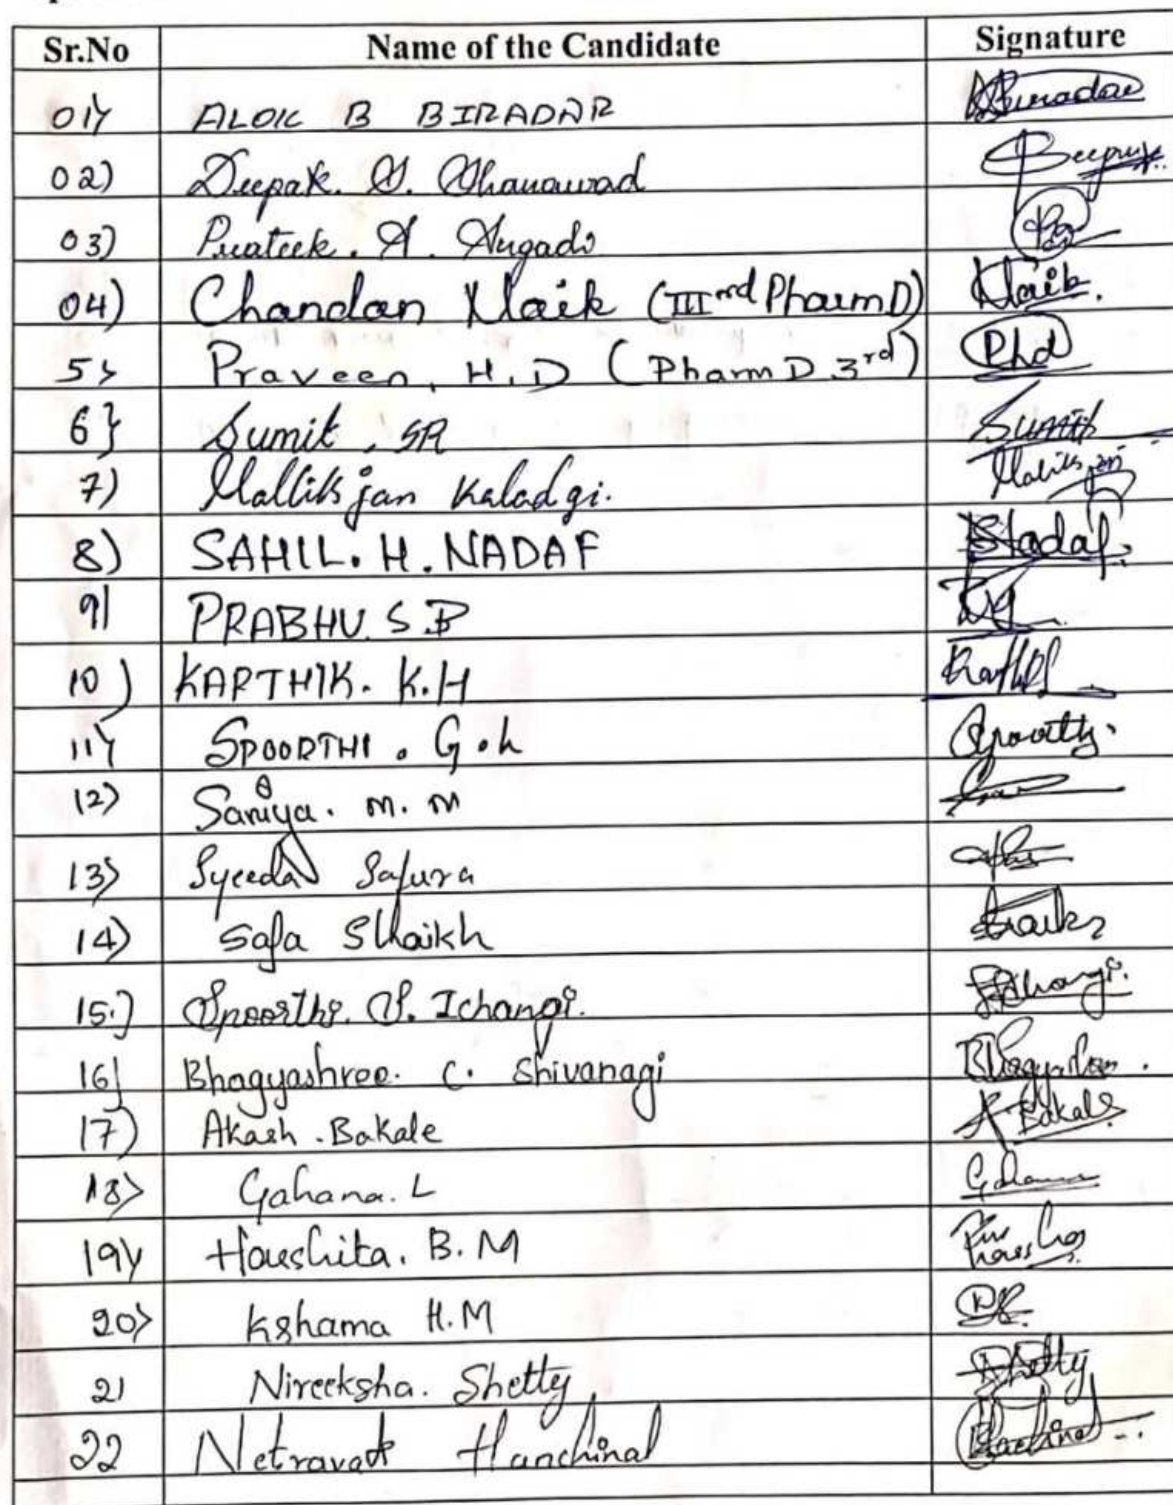 Sr.No Name of the Candidate Signature
01) ALOK B BIRADAR Biradar
02) Deepak. G. Ghanawad Deepak
03) Prateek. A. Angadi
04) Chandan Naik (IIIrd Pharm D) Naik.
5) Praveen. H.D (Pharm D 3rd) Phd
6} Sumit . SR Sumit
7) Mallikjan Kaladgi.
8) SAHIL. H. NADAF Nadaf.
9) PRABHU. S.B
10) KARTHIK. K.H
11) SPOORTHI . G.h Spoorthy.
12) Saniya. M. M
13) Syeeda Safura
14) Safa Shaikh
15.) Spoorthi. S. Ichangi. Ichangi.
16) Bhagyashree. C. Shivanagi Bhagyashree.
17) Akash . Bakale A Bakale
18) Gahana. L Gahana
19) Harshita. B. M
20) Kshama H.M
21 Nireeksha. Shetty Shetty
22 Netravati Hanchinal Hanchinal